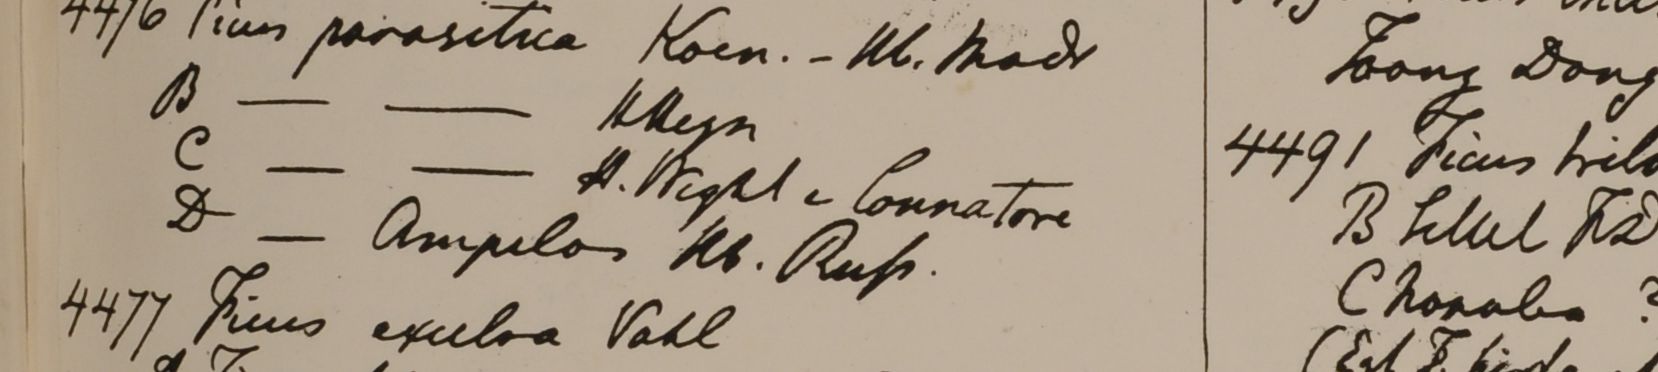 4476 Ficus parasitica Koen. - Hb. Madr
B — — H Heyn
C — — H. Wight e Connatore
D — Ampelos Hb. Russ.
4477 Ficus excelsa Vahl
Toong Dong
4491 Ficus
B Sillet FD
C ?